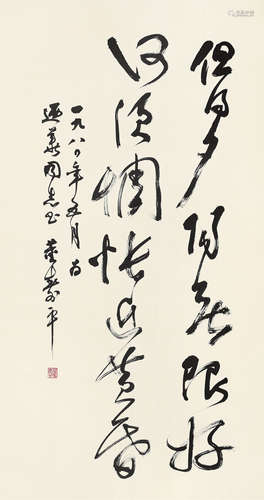 但得夕阳无限好
何须惆怅近黄昏
一九八〇年五月为
逊义同志书 董寿平